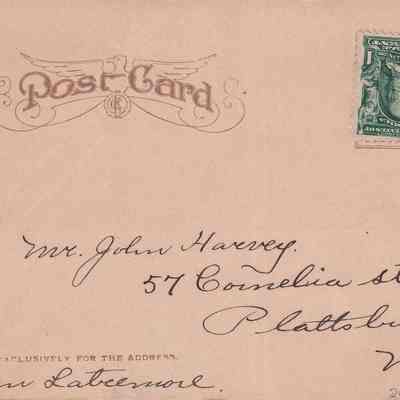 Post Card
Mr. John Harvey.
57 Cornelia st
Plattsbu
EXCLUSIVELY FOR THE ADDRESS.